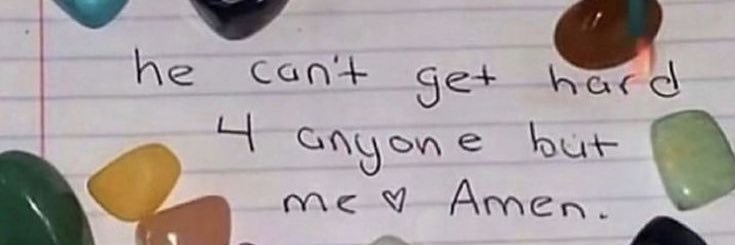 he can't get hard
4 anyone but
me ♡ Amen.